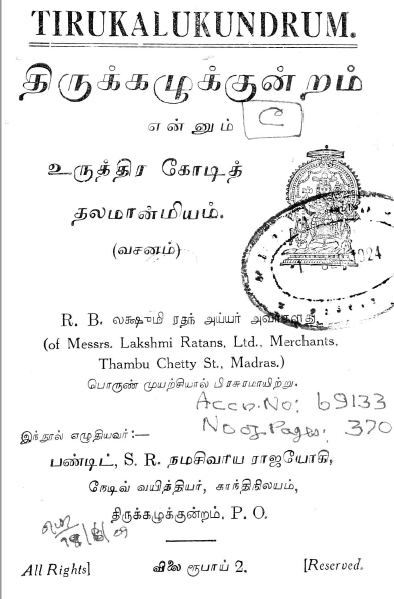 TIRUKALUKUNDRUM.
திருக்கழுக்குன்றம்
என்னும்
C
உருத்திர கோடித்
தலமான்மியம்.
(வசனம்)
1924
R. B. லக்ஷுமி ரதந் அய்யர் அவர்களதி
(of Messrs. Lakshmi Ratans, Ltd., Merchants,
Thambu Chetty St., Madras.)
பொருண் முயற்சியால் பிரசுரமாயிற்று.
Accn. No: 69133
No of Pages: 370
இந்நூல் எழுதியவர்:—
பண்டிட், S. R. நமசிவாய ராஜயோகி,
நேடிவ் வயித்தியர், காந்திநிலயம்,
திருக்கழுக்குன்றம். P. O.
All Rights] விலை ரூபாய் 2. [Reserved.